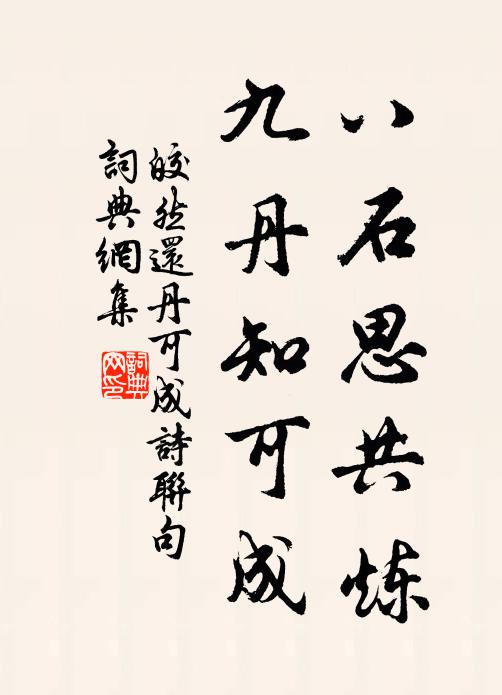 八石思共炼
九丹知可成
皎然還丹可成詩聯句
詞典網集
詞典网印